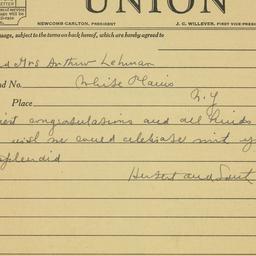 UNION
LETTER
NEWCOMB CARLTON, PRESIDENT J. C. WILLEVER, FIRST VICE-PRES
sage, subject to the terms on back hereof, which are hereby agreed to
d Mrs Arthur Lehman
nd No. White Plains
Place N.Y
congratulations and all kinds
wish we could celebrate with y
splendid
Herbert and